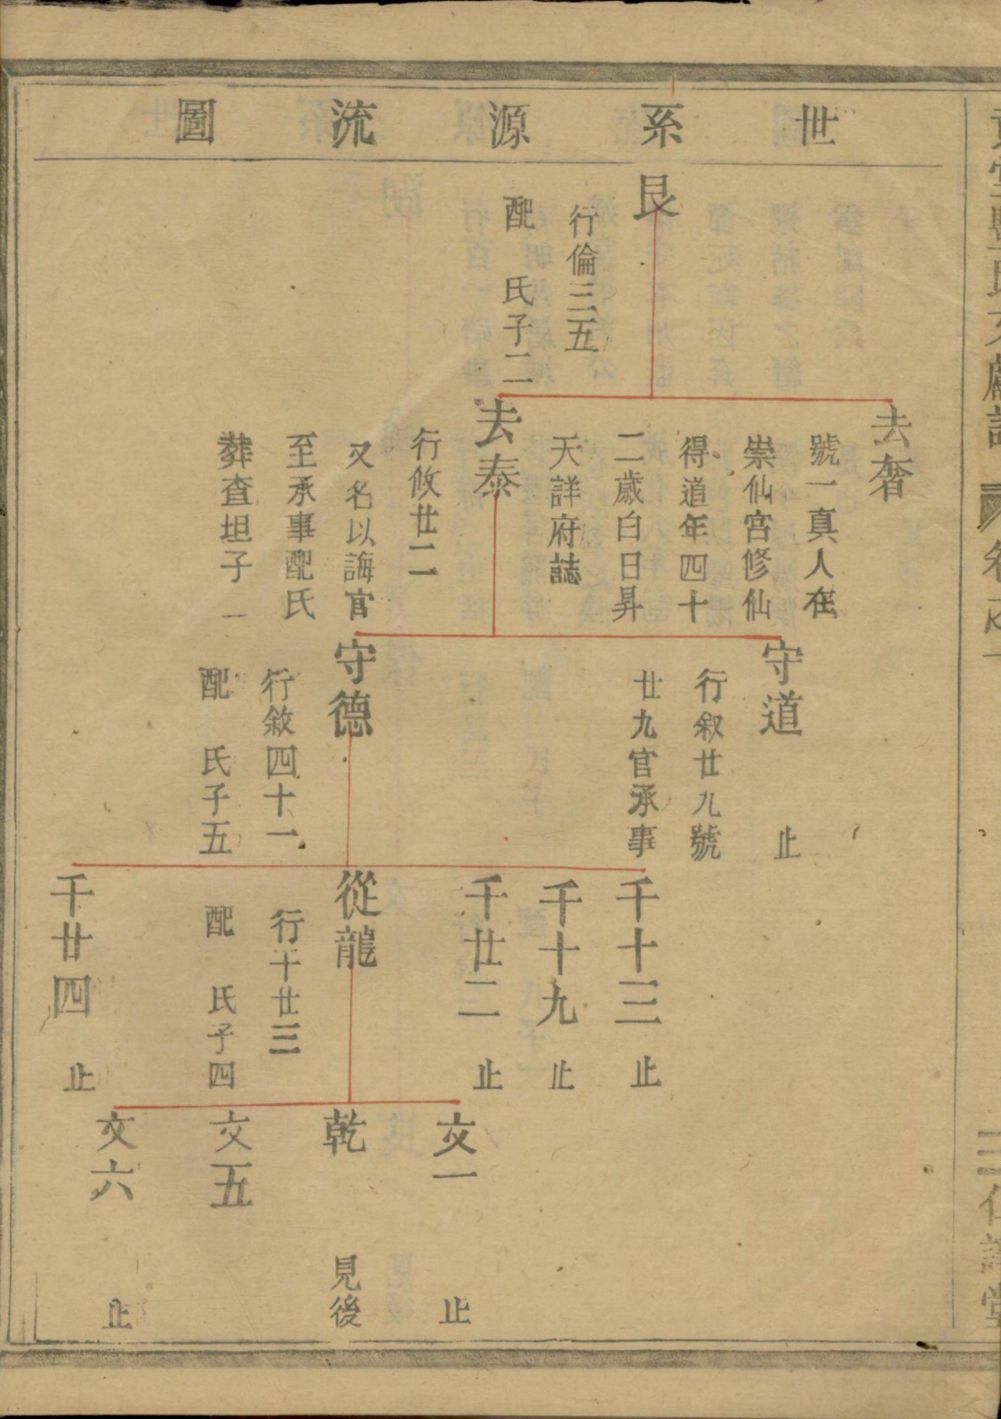 世系源流圖
艮
行倫三五
配 氏子二
去奢
號一真人在
崇仙宫修仙
得道年四十
二歲白日昇
天詳府誌
去泰
行攸廿二
又名以誨官
至承事配氏
葬查坦子一
守道 止
行叙廿九號
廿九官承事
守德
行敘四十一
配 氏子五
千十三 止
千十九 止
千廿二 止
從龍
行千廿三
配 氏子四
千廿四 止
文一 止
乾 見後
文五
文六 止